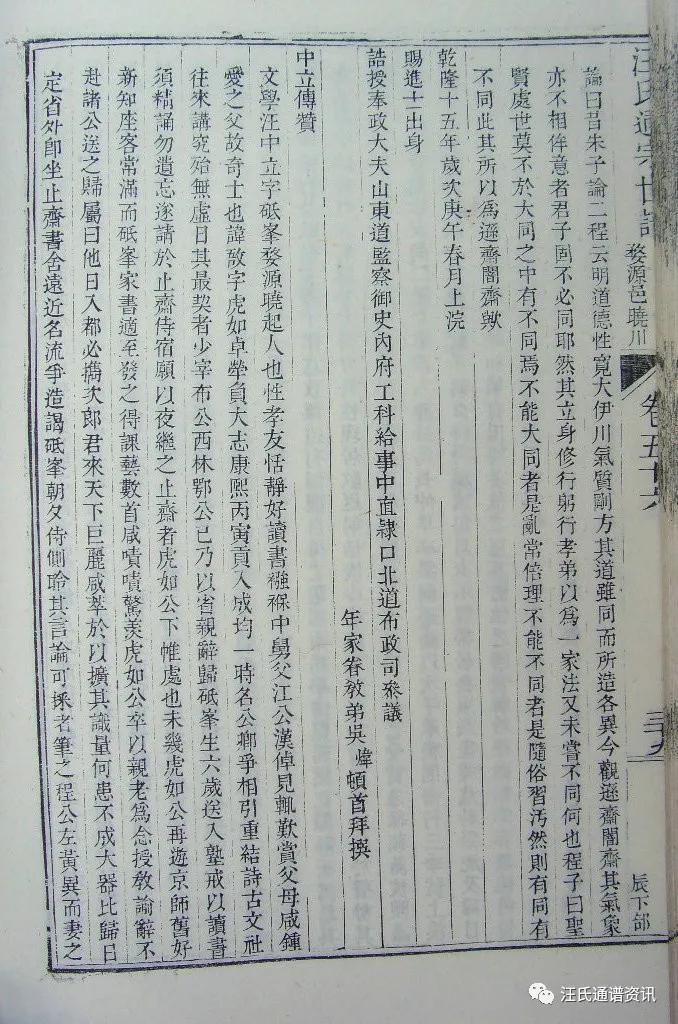 汪氏通宗世譜 婺源邑曉川 卷五十六 三十九 辰下部
論曰昔朱子論二程云明道德性寬大伊川氣質剛方其道雖同而所造各異今觀遜齋闇齋其氣象
亦不相侔意者君子固不必同耶然其立身修行躬行孝弟以為一家法又未嘗不同何也程子曰聖
賢處世莫不於大同之中有不同焉不能大同者是亂常倍理不能不同者是隨俗習汚然則有同有
不同此其所以爲遜齋闇齋歟
乾隆十五年歲次庚午春月上浣
賜進士出身
誥授奉政大夫山東道監察御史內府工科給事中直隸口北道布政司叅議
年家眷教弟吳煒頓首拜撰
中立傳贊
文學汪中立字砥峯婺源曉起人也性孝友恬靜好讀書襁褓中舅父江公漢倬見輒歎賞父母咸鍾
愛之父故奇士也諱敔字虎如卓犖負大志康熙丙寅貢入成均一時名公卿爭相引重結詩古文社
往來講究殆無虛日其最契者少宰布公西林鄂公已乃以省親辭歸砥峯生六歲送入塾戒以讀書
須精誦勿遺忘遂請於止齋侍宿願以夜繼之止齋者虎如公下帷處也未幾虎如公再遊京師舊好
新知座客常滿而砥峯家書適至發之得課藝數首咸嘖嘖驚羨虎如公卒以親老爲念授教諭辭不
赴諸公送之歸屬曰他日入都必擕次郎君來天下巨麗咸萃於以擴其識量何患不成大器比歸日
定省外卽坐止齋書舍遠近名流爭造謁砥峯朝夕侍側聆其言論可採者筆之程公左黃異而妻之
汪氏通谱资讯